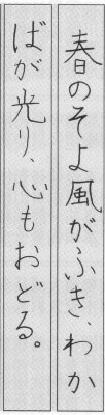 春のそよ風がふき、わか
ばが光り、心もおどる。